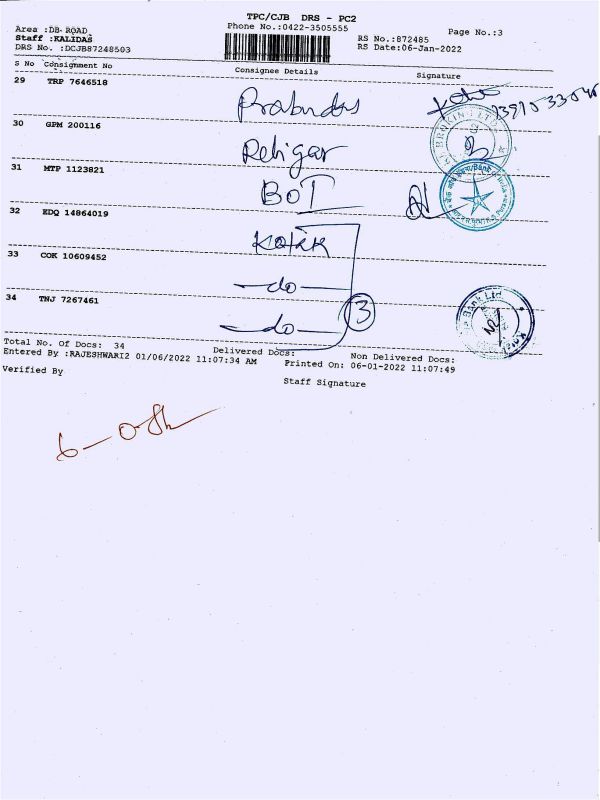 TPC/CJB DRS - PC2
Area :DB-ROAD Phone No.:0422-3505555 Page No.:3
Staff :KALIDAS RS No.:872485
DRS No. :DCJB87248503 RS Date:06-Jan-2022
S No Consignment No Consignee Details Signature
29 TRP 7646518 Prabudas
30 GPM 200116 Religar
31 MTP 1123821 BOI
32 EDQ 14864019 Kotak
33 COK 10609452 —do—
34 TNJ 7267461 —do— 3
Total No. of Docs: 34 Delivered Docs: Non Delivered Docs:
Entered By :RAJESHWARI2 01/06/2022 11:07:34 AM Printed On: 06-01-2022 11:07:49
Verified By Staff Signature